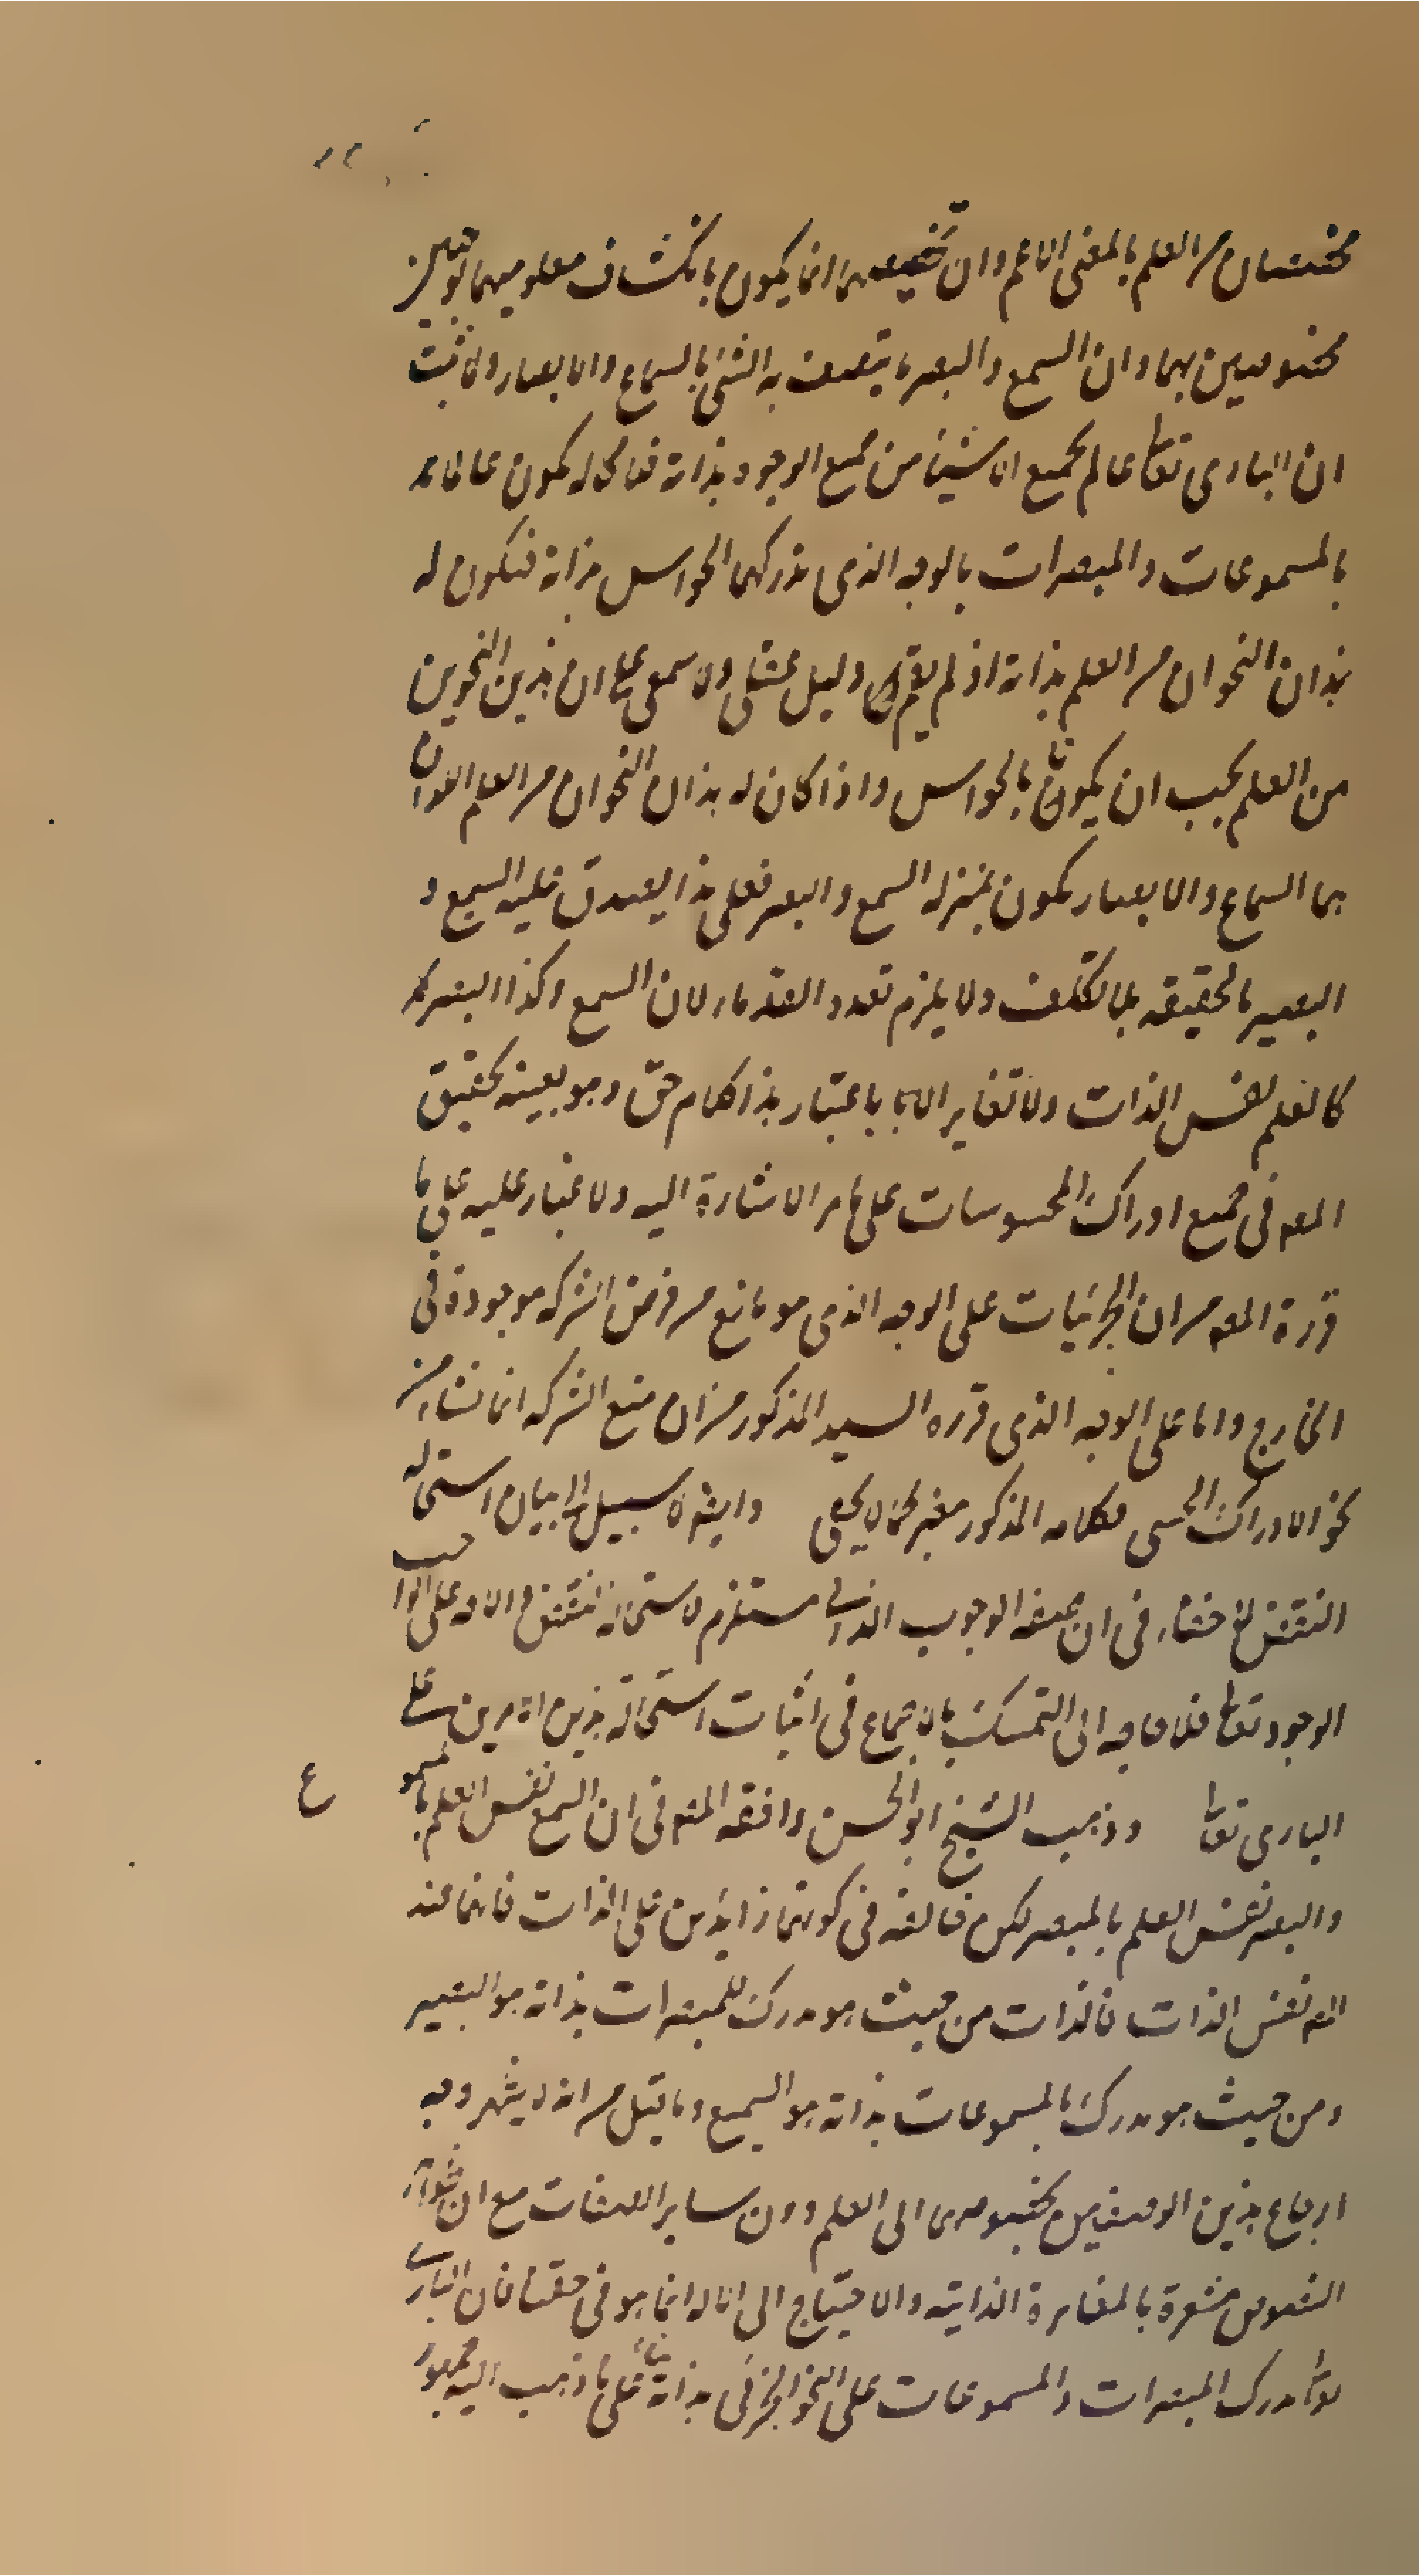 مختصان من العلم بالمعنى الاعم وان تخصيصهما انما يكون بانكشاف معلوميهما بوجهين
مخصوصين بهما وان السمع والبصر ما يتصف به الشئ بالسماع والابصار ولما ثبت
ان البارى تعالى عالم بجميع الاشياء من جميع الوجود بذاته فلا محاله يكون عالما
بالمسموعات والمبصرات بالوجه الذى يدركهما الحواس بذاته فيكون له
هذان النحوان من العلم بذاته اذ لم يقم دليل عقلى ولا سمعى على ان هذين النحوين
من العلم يجب ان يكونا بالحواس واذا كان له هذان النحوان من العلم اللذان
هما السماع والابصار يكون بمنزله السمع والبصر فعلى هذا يصدق عليه السميع و
البصير بالحقيقه بلا تكلف ولا يلزم تعدد القدماء لان السمع وكذا البصر
كالعلم نفس الذات ولا تغاير الا بالاعتبار هذا كلام حق وهو بعينه تحقيق
المص فى جميع ادراك المحسوسات على ما مر الاشارة اليه ولا غبار عليه على ما
قرره المص من ان الجزئيات على الوجه الذى هو مانع من فرض الشركه موجودة فى
الخارج واما على الوجه الذى قرره السيد المذكور من ان منع الشركه انما نشاء من
نحو الادراك الحسى فكلامه المذكور مغبر كما لا يخفى وايضا لا سبيل الى بيان استحاله
النقص فى ان محض الوجوب الذاتى مستلزم لاستحاله النقص والافه على الواجب
الوجود تعالى فلا حاجه الى التمسك بالاجماع فى اثبات استحالة هذين الامرين على
البارى تعالى وذهب الشيخ ابو الحسن وافقه المص فى ان السمع نفس العلم بالمسموع
والبصر نفس العلم بالمبصر لكن خالفه فى كونهما زايدين على الذات فانهما عند
المص نفس الذات فالذات من حيث هو مدرك للمبصرات بذاته هو البصير
ومن حيث هو مدرك بالمسموعات بذاته هو السميع وما يقيل من انه لا يظهر وجه
ارجاع هذين الوصفين بخصوصه الى العلم دون ساير الصفات مع ان ظواهر
النصوص مشعرة بالمغايرة الذاتيه والاحتياج الى الاله انما هو فى حقنا فان البارى
تعالى مدرك المبصرات والمسموعات على النحو الجزئى بذاته بناء على ما ذهب اليه جمهور
ع